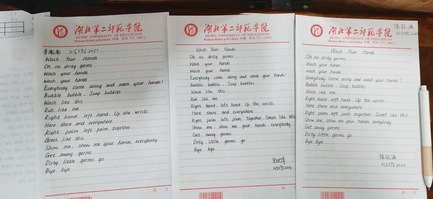 湖北第二师范学院
Wash Your Hands
Oh no dirty germs
Wash your hands
Wash your hands
Everybody come along and wash your hands!
Bubble bubble Soap bubbles
Wash like this
Rub like me
Right hand left hand Up the wrists
Here there and everywhere
Right palm left palm together
Show me show me your hands everybody
Get away germs
Dirty little germs go
Bye bye
湖北第二师范学院
Wash Your Hands
Oh no dirty germs
Wash your hands
Wash your hands
Everybody come along and wash your hands!
Bubble bubble Soap bubbles
Wash like this
Rub like me
Right hand left hand Up the wrists
Here there and everywhere
Right palm left palm together Great like this
Show me show me your hands everybody
Get away germs
Dirty little germs go
Bye bye
湖北第二师范学院
Wash Your Hands
Oh no dirty germs
Wash your hands
Wash your hands
Everybody come along and wash your hands!
Bubble bubble Soap bubbles
Wash like this
Right hand left hand Up the wrists
Here there and everywhere
Right palm left palm together Great like this
Show me show me your hands everybody
Get away germs
Dirty little germs go
Bye bye